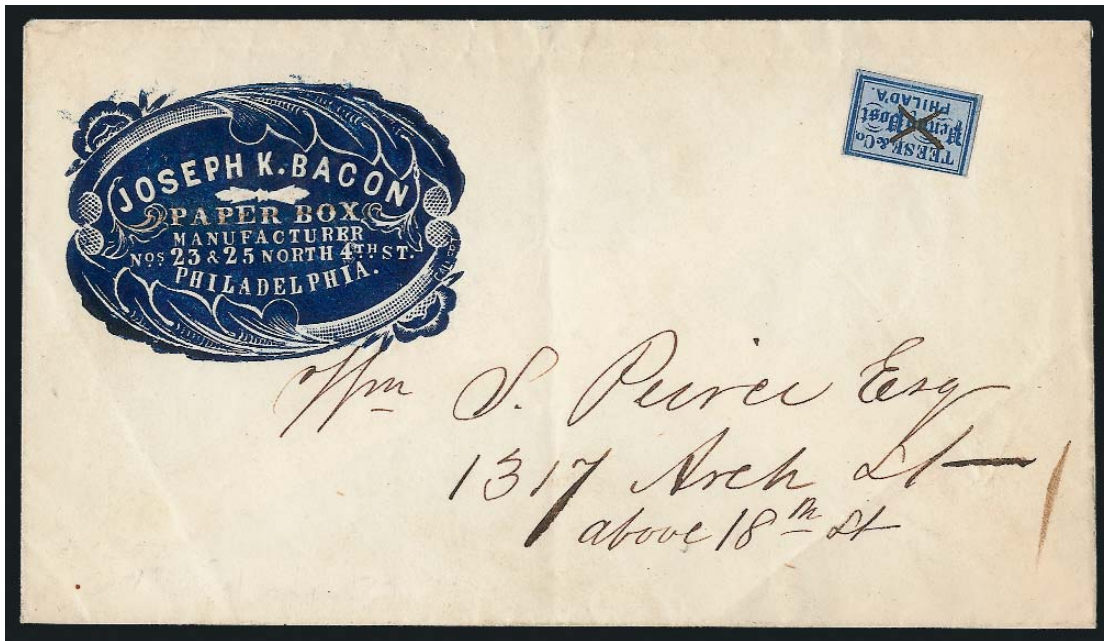 JOSEPH K. BACON
PAPER BOX
MANUFACTURER
Nos 23 & 25 NORTH 4TH ST.
PHILADELPHIA.
TEESE & Co
Penny Post
PHILAD'A.
Wm S. Peirce Esq
1317 Arch St
above 18th St